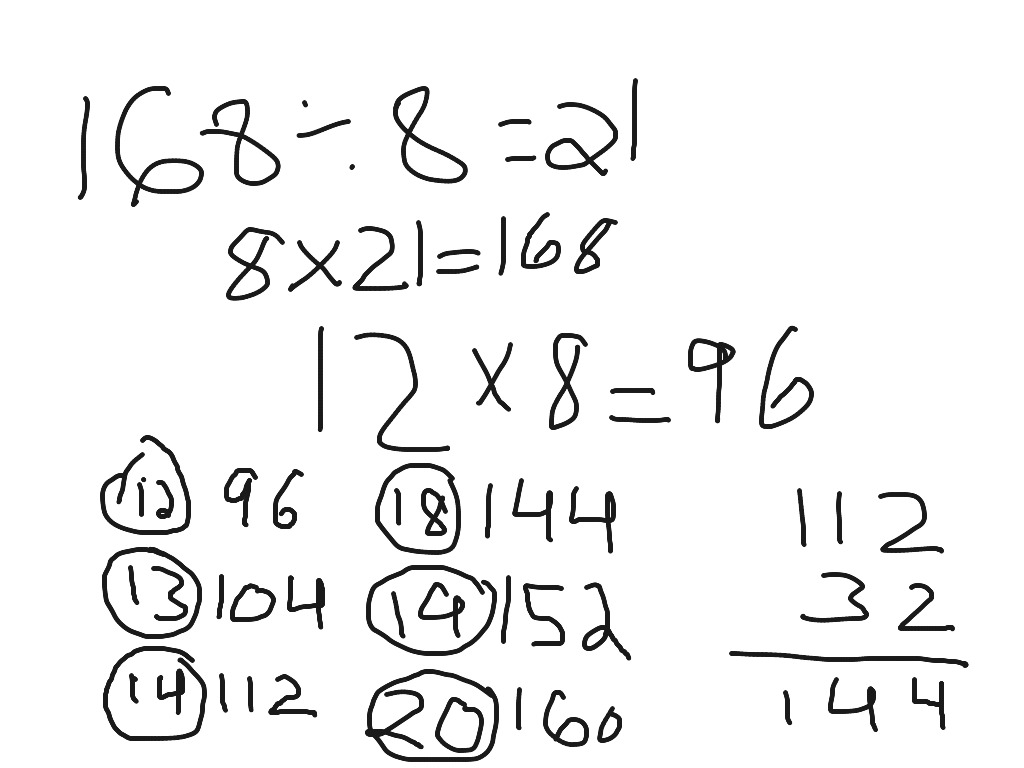 168÷8=21
8×21=168
12×8=96
12 96 18 144 112
13 104 14 152 32
14 112 20 160 144